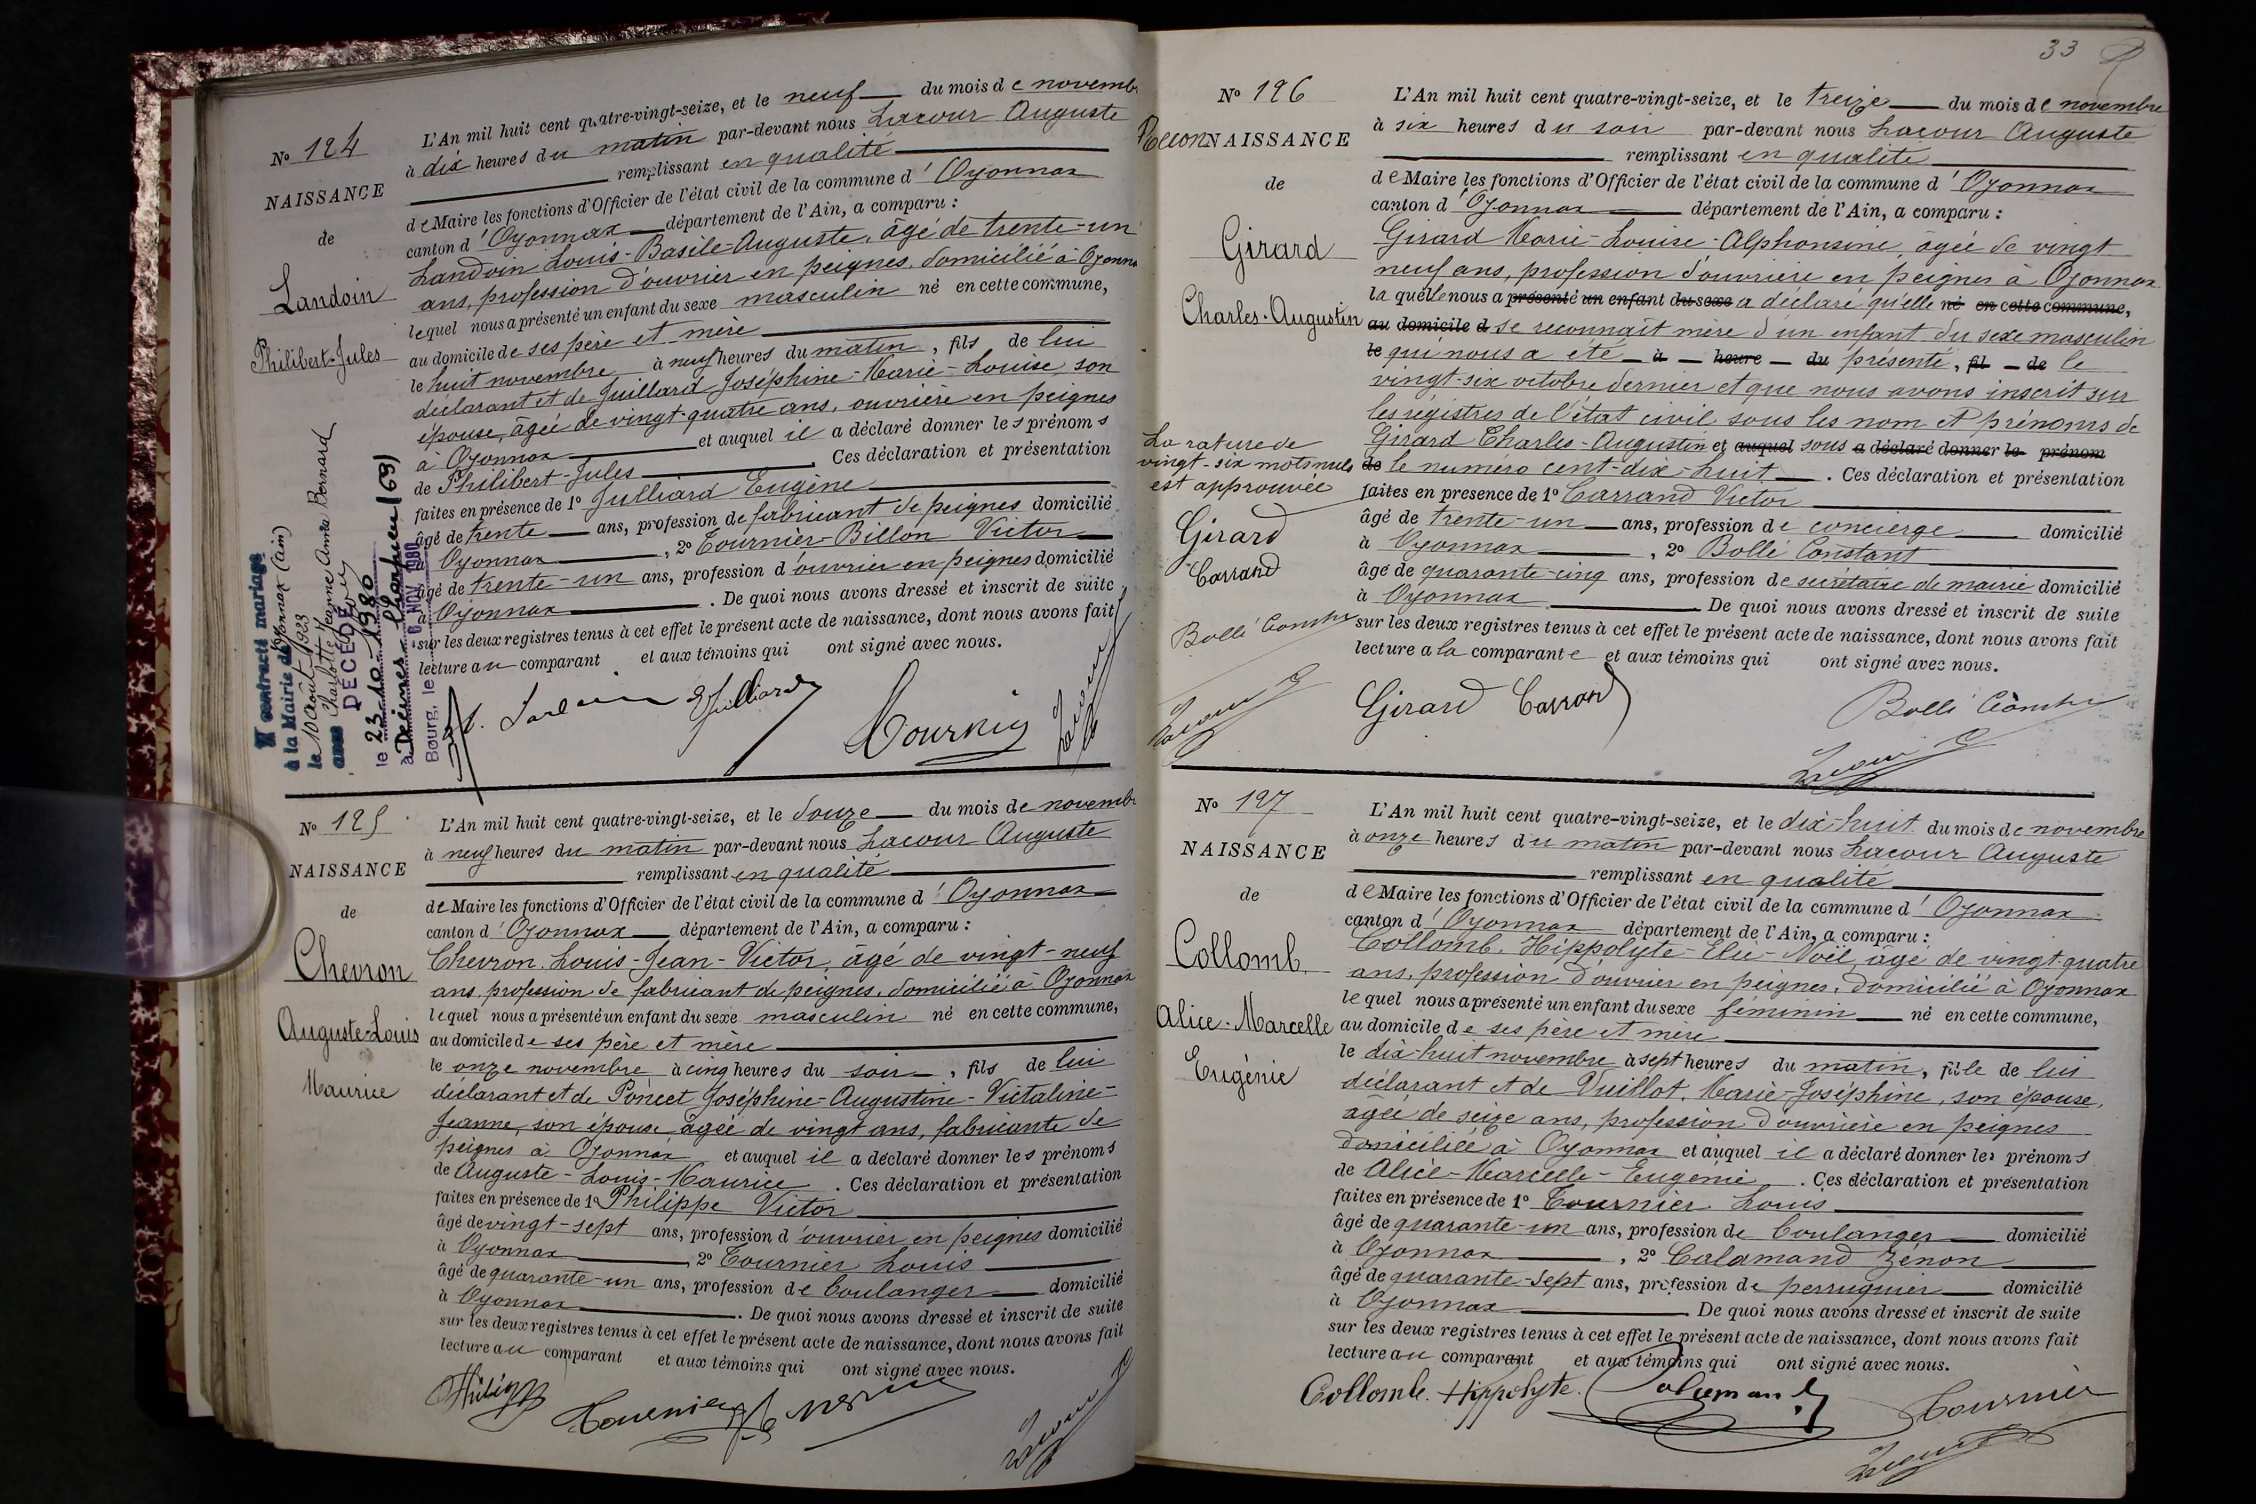 Nº 124
NAISSANCE
de
Landoin
Philibert-Jules
L'An mil huit cent quatre-vingt-seize, et le neuf du mois de novembre
à dix heures du matin par-devant nous Lacour Auguste
remplissant en qualité
de Maire les fonctions d'Officier de l'état civil de la commune d'Oyonnax
canton d'Oyonnax département de l'Ain, a comparu :
Landoin Louis-Basile-Auguste, âgé de trente-un
ans, profession d'ouvrier en peignes, domicilié à Oyonnax
lequel nous a présenté un enfant du sexe masculin né en cette commune,
au domicile de ses père et mère
le huit novembre à neuf heures du matin, fils de lui
déclarant et de Juillard Joséphine-Marie-Louise son
épouse, âgée de vingt-quatre ans, ouvrière en peignes
à Oyonnax et auquel il a déclaré donner les prénoms
de Philibert-Jules Ces déclaration et présentation
faites en présence de 1º Julliard Eugène
âgé de trente ans, profession de fabricant de peignes domicilié
à Oyonnax, 2º Tournier-Billon Victor
âgé de trente-un ans, profession d'ouvrier en peignes domicilié
à Oyonnax. De quoi nous avons dressé et inscrit de suite
sur les deux registres tenus à cet effet le présent acte de naissance, dont nous avons fait
lecture au comparant et aux témoins qui ont signé avec nous.
A contracté mariage
à la Mairie de Oyonnax (Ain)
le 10 août 1923
avec Charlotte Jeanne Anna Bernard
DÉCÉDÉ
le 23.10.1980
à Decines Charpieu (69)
Bourg, le 6 NOV. 1980
Nº 125
NAISSANCE
de
Chevron
Auguste-Louis
Maurice
L'An mil huit cent quatre-vingt-seize, et le douze du mois de novembre
à neuf heures du matin par-devant nous Lacour Auguste
remplissant en qualité
de Maire les fonctions d'Officier de l'état civil de la commune d'Oyonnax
canton d'Oyonnax département de l'Ain, a comparu :
Chevron Louis-Jean-Victor, âgé de vingt-neuf
ans, profession de fabricant de peignes, domicilié à Oyonnax
lequel nous a présenté un enfant du sexe masculin né en cette commune,
au domicile de ses père et mère
le onze novembre à cinq heures du soir, fils de lui
déclarant et de Poncet Joséphine-Augustine-Victaline-
Jeanne, son épouse âgée de vingt ans, fabricante de
peignes à Oyonnax et auquel il a déclaré donner les prénoms
de Auguste-Louis-Maurice. Ces déclaration et présentation
faites en présence de 1º Philippe Victor
âgé de vingt-sept ans, profession d'ouvrier en peignes domicilié
à Oyonnax, 2º Tournier Louis
âgé de quarante-un ans, profession de boulanger domicilié
à Oyonnax. De quoi nous avons dressé et inscrit de suite
sur les deux registres tenus à cet effet le présent acte de naissance, dont nous avons fait
lecture au comparant et aux témoins qui ont signé avec nous.
33
Nº 126
NAISSANCE
de
Girard
Charles-Augustin
L'An mil huit cent quatre-vingt-seize, et le treize du mois de novembre
à six heures du soir par-devant nous Lacour Auguste
remplissant en qualité
de Maire les fonctions d'Officier de l'état civil de la commune d'Oyonnax
canton d'Oyonnax département de l'Ain, a comparu :
Girard Marie-Louise-Alphonsine, âgée de vingt
neuf ans, profession d'ouvrière en peignes à Oyonnax
laquelle nous a présenté un enfant du sexe a déclaré qu'elle né en cette commune,
au domicile d se reconnaît mère d'un enfant du sexe masculin
le qui nous a été à heure du présenté, fil de le
vingt-six octobre dernier et que nous avons inscrit sur
les registres de l'état civil sous les nom et prénoms de
Girard Charles-Augustin et auquel sous a déclaré donner le prénom
de le numéro cent-dix-huit. Ces déclaration et présentation
faites en presence de 1º Carrand Victor
âgé de trente-un ans, profession de concierge domicilié
à Oyonnax, 2º Bollé Constant
âgé de quarante-cinq ans, profession de secrétaire de mairie domicilié
à Oyonnax De quoi nous avons dressé et inscrit de suite
sur les deux registres tenus à cet effet le présent acte de naissance, dont nous avons fait
lecture a la comparante et aux témoins qui ont signé avec nous.
La rature de
vingt-six mots nuls
est approuvée
Girard
Carrand
Girard Carrand
Nº 127
NAISSANCE
de
Collomb
Alice-Marcelle
Eugénie
L'An mil huit cent quatre-vingt-seize, et le dix-huit du mois de novembre
à onze heures du matin par-devant nous Lacour Auguste
remplissant en qualité
de Maire les fonctions d'Officier de l'état civil de la commune d'Oyonnax
canton d'Oyonnax département de l'Ain, a comparu :
Collomb Hippolyte-Elie-Noël, âgé de vingt-quatre
ans, profession d'ouvrier en peignes, domicilié à Oyonnax
lequel nous a présenté un enfant du sexe féminin né en cette commune,
au domicile de ses père et mère
le dix-huit novembre à sept heures du matin, fille de lui
déclarant et de Vuillot Marie-Joséphine, son épouse,
âgée de seize ans, profession d'ouvrière en peignes
domiciliée à Oyonnax et auquel il a déclaré donner les prénoms
de Alice-Marcelle-Eugénie. Ces déclaration et présentation
faites en présence de 1º Tournier Louis
âgé de quarante-un ans, profession de boulanger domicilié
à Oyonnax, 2º Calamand Zénon
âgé de quarante-sept ans, profession de perruquier domicilié
à Oyonnax De quoi nous avons dressé et inscrit de suite
sur les deux registres tenus à cet effet le présent acte de naissance, dont nous avons fait
lecture au comparant et aux témoins qui ont signé avec nous.
Collomb Hippolyte Calamand Tournier